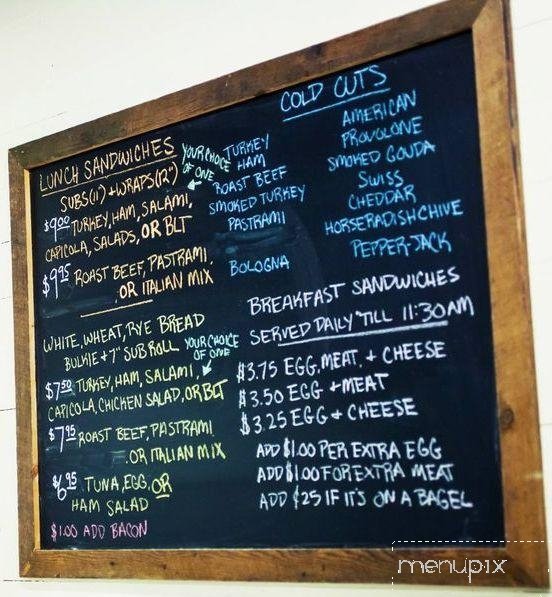 COLD CUTS
LUNCH SANDWICHES
SUBS(11") + WRAPS(12")
YOUR CHOICE
OF ONE
$9.00 TURKEY, HAM, SALAMI,
CAPICOLA, SALADS, OR BLT
$9.95 ROAST BEEF, PASTRAMI,
OR ITALIAN MIX
WHITE, WHEAT, RYE BREAD
BULKIE + 7" SUB ROLL
YOUR CHOICE
OF ONE
$7.50 TURKEY, HAM, SALAMI,
CAPICOLA, CHICKEN SALAD, OR BLT
$7.95 ROAST BEEF, PASTRAMI
OR ITALIAN MIX
$6.95 TUNA, EGG, OR
HAM SALAD
$1.00 ADD BACON
TURKEY
HAM
ROAST BEEF
SMOKED TURKEY
PASTRAMI
BOLOGNA
AMERICAN
PROVOLONE
SMOKED GOUDA
SWISS
CHEDDAR
HORSERADISH CHIVE
PEPPER-JACK
BREAKFAST SANDWICHES
SERVED DAILY 'TILL 11:30AM
$3.75 EGG, MEAT, + CHEESE
$3.50 EGG + MEAT
$3.25 EGG + CHEESE
ADD $1.00 PER EXTRA EGG
ADD $1.00 FOR EXTRA MEAT
ADD ¢25 IF IT'S ON A BAGEL
menupix